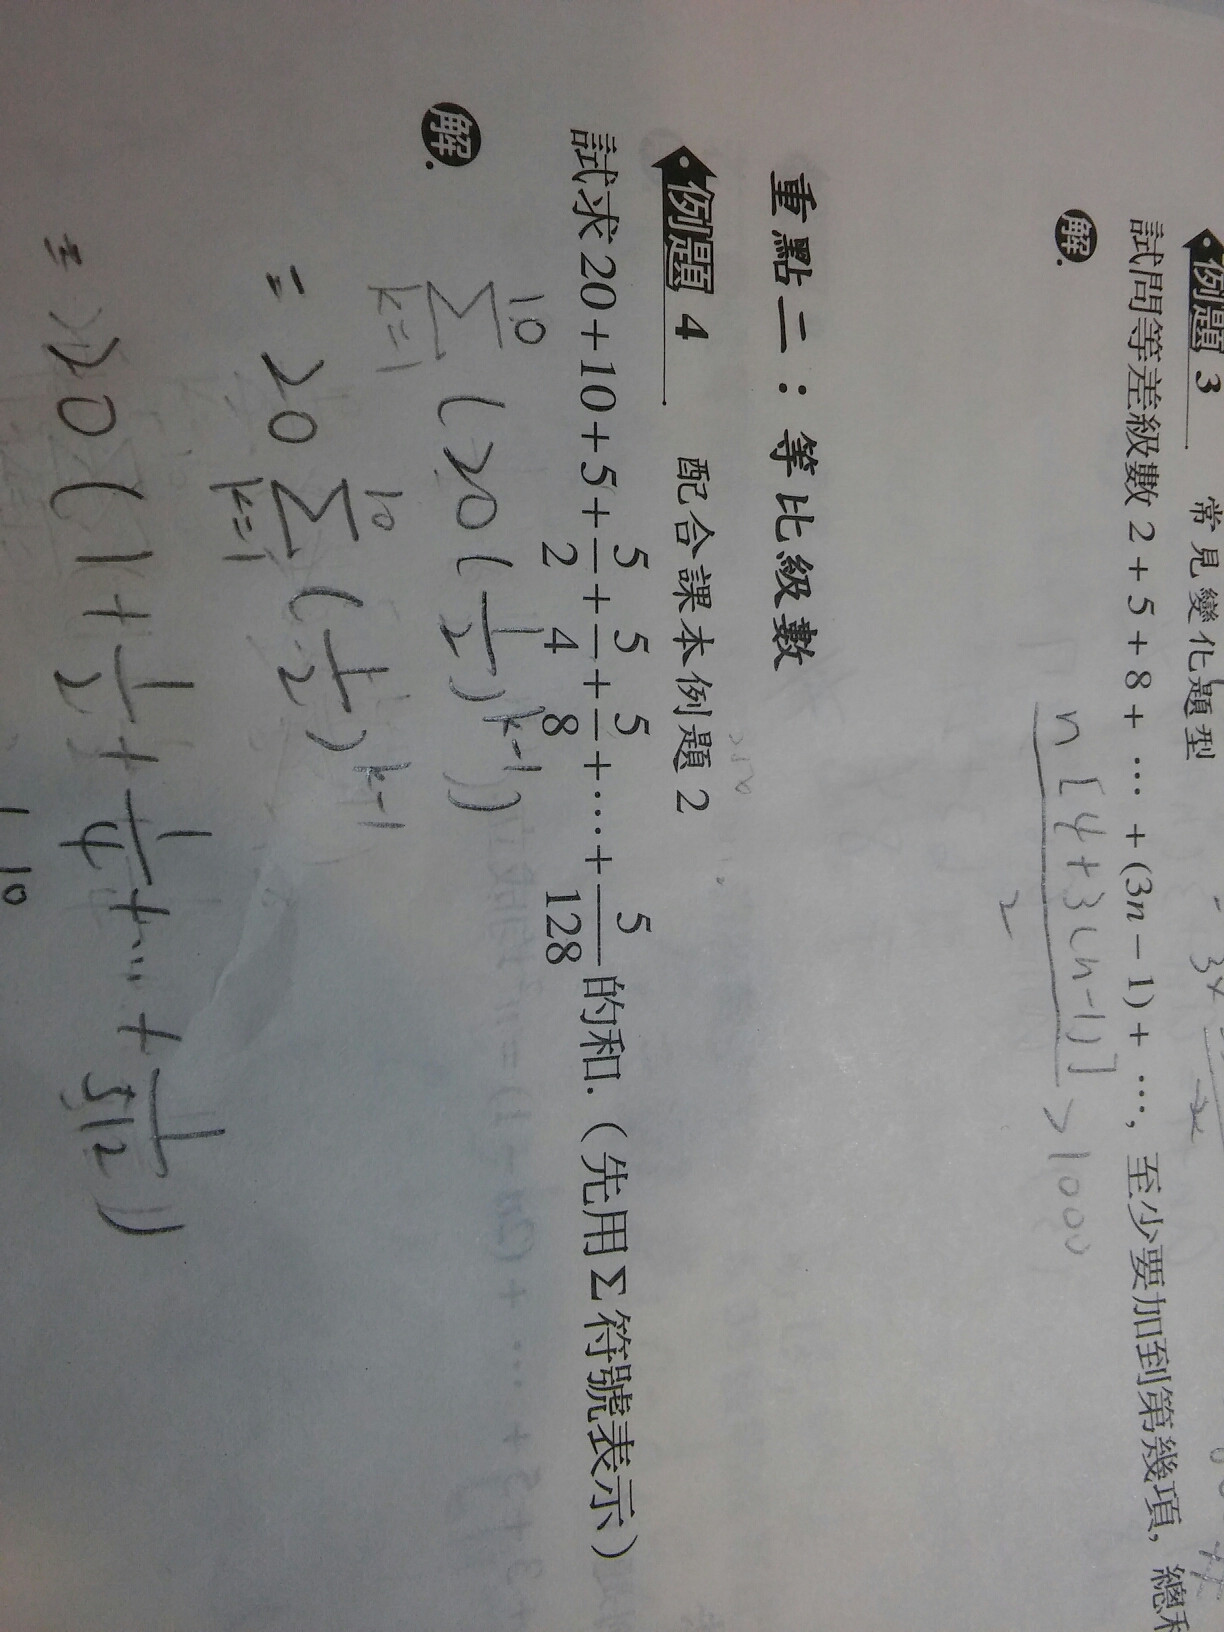 例題 3 常見變化題型
試問等差級數 2 + 5 + 8 + … + (3n − 1) + …, 至少要加到第幾項, 總和
解.
n[4+3(n-1)]/2 > 1000
重點二：等比級數
例題 4 配合課本例題 2
試求 20 + 10 + 5 + 5/2 + 5/4 + 5/8 + … + 5/128 的和.（先用 Σ 符號表示）
解.
10 Σ k=1 (20(1/2)^k-1)
= 20 10 Σ k=1 (1/2)^k-1
= 20(1+1/2+1/4+…+1/512)
1 10